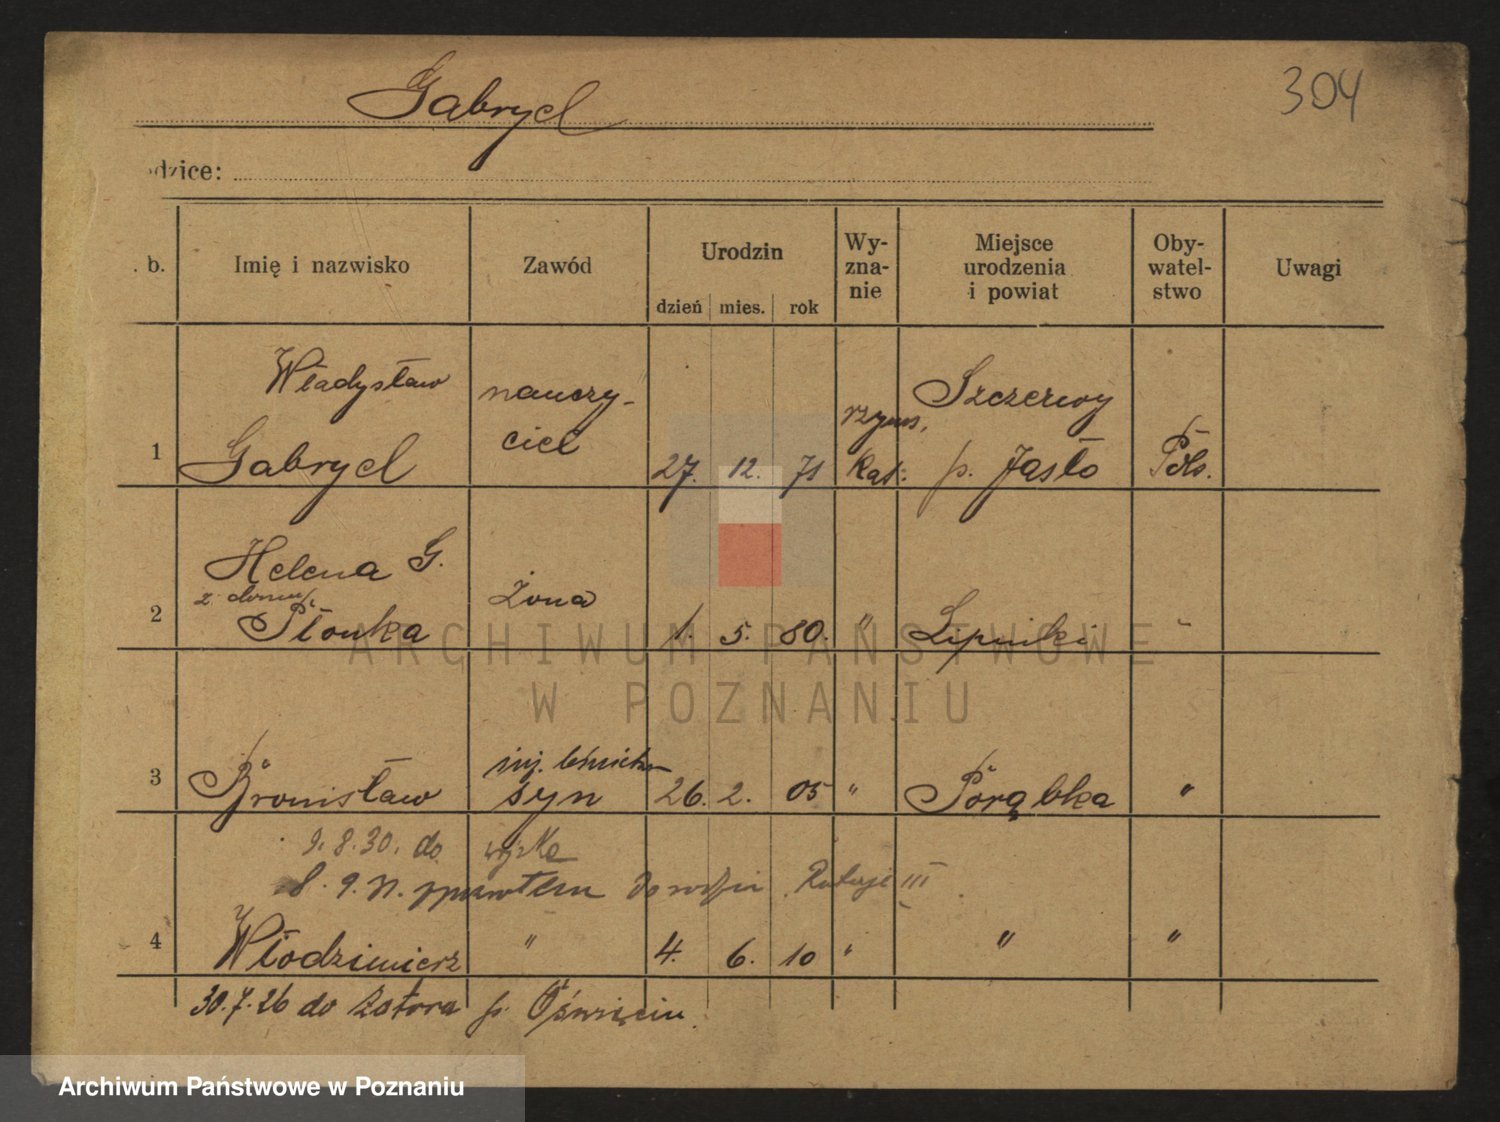 304
Gabryel
odzice:
. b.
Imię i nazwisko
Zawód
Urodzin
dzień
mies.
rok
Wy-
zna-
nie
Miejsce
urodzenia
i powiat
Oby-
watel-
stwo
Uwagi
1
Władysław
Gabryel
nauczy-
ciel
27. 12. 71
rzyms.
Kat.
p. Jasło
Pols.
2
Helena G.
z domu
Płonka
żona
1. 5. 80.
"
Lipniki
"
3
Bronisław
inż.
syn
26. 2. 05
"
Porąbka
"
9. 8. 30. do wojska
8. 9. 31. do
Ratajе III
4
Włodzimierz
"
4. 6. 10
"
"
"
30.7.26 do Zatora p. Oświęcim
ARCHIWUM PAŃSTWOWE
W POZNANIU
Archiwum Państwowe w Poznaniu